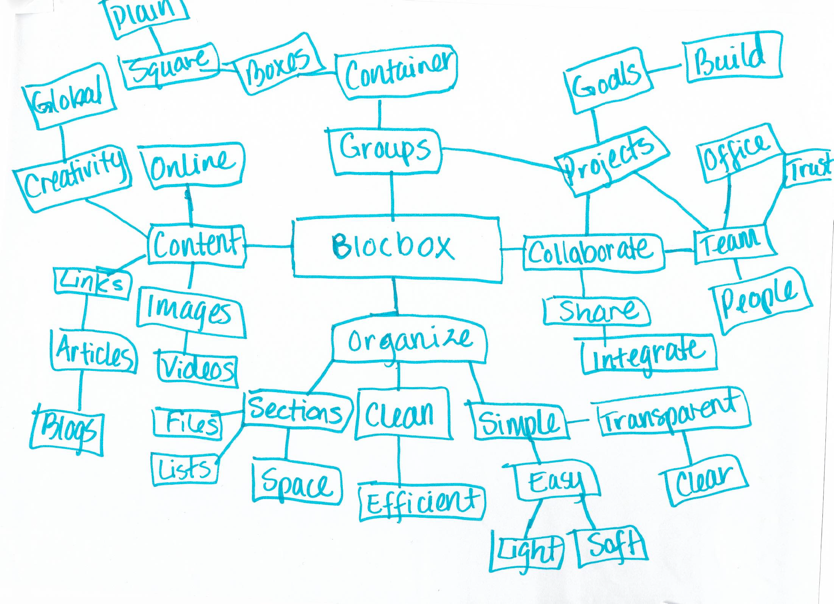 Plain
Square
Boxes
Container
Goals
Build
Global
Groups
Projects
Office
Trust
Creativity
Online
Content
Blocbox
Collaborate
Team
Links
Images
Share
People
Articles
Videos
Organize
Integrate
Blogs
Files
Sections
Clean
Simple
Transparent
Lists
Space
Efficient
Easy
Clear
Light
Soft